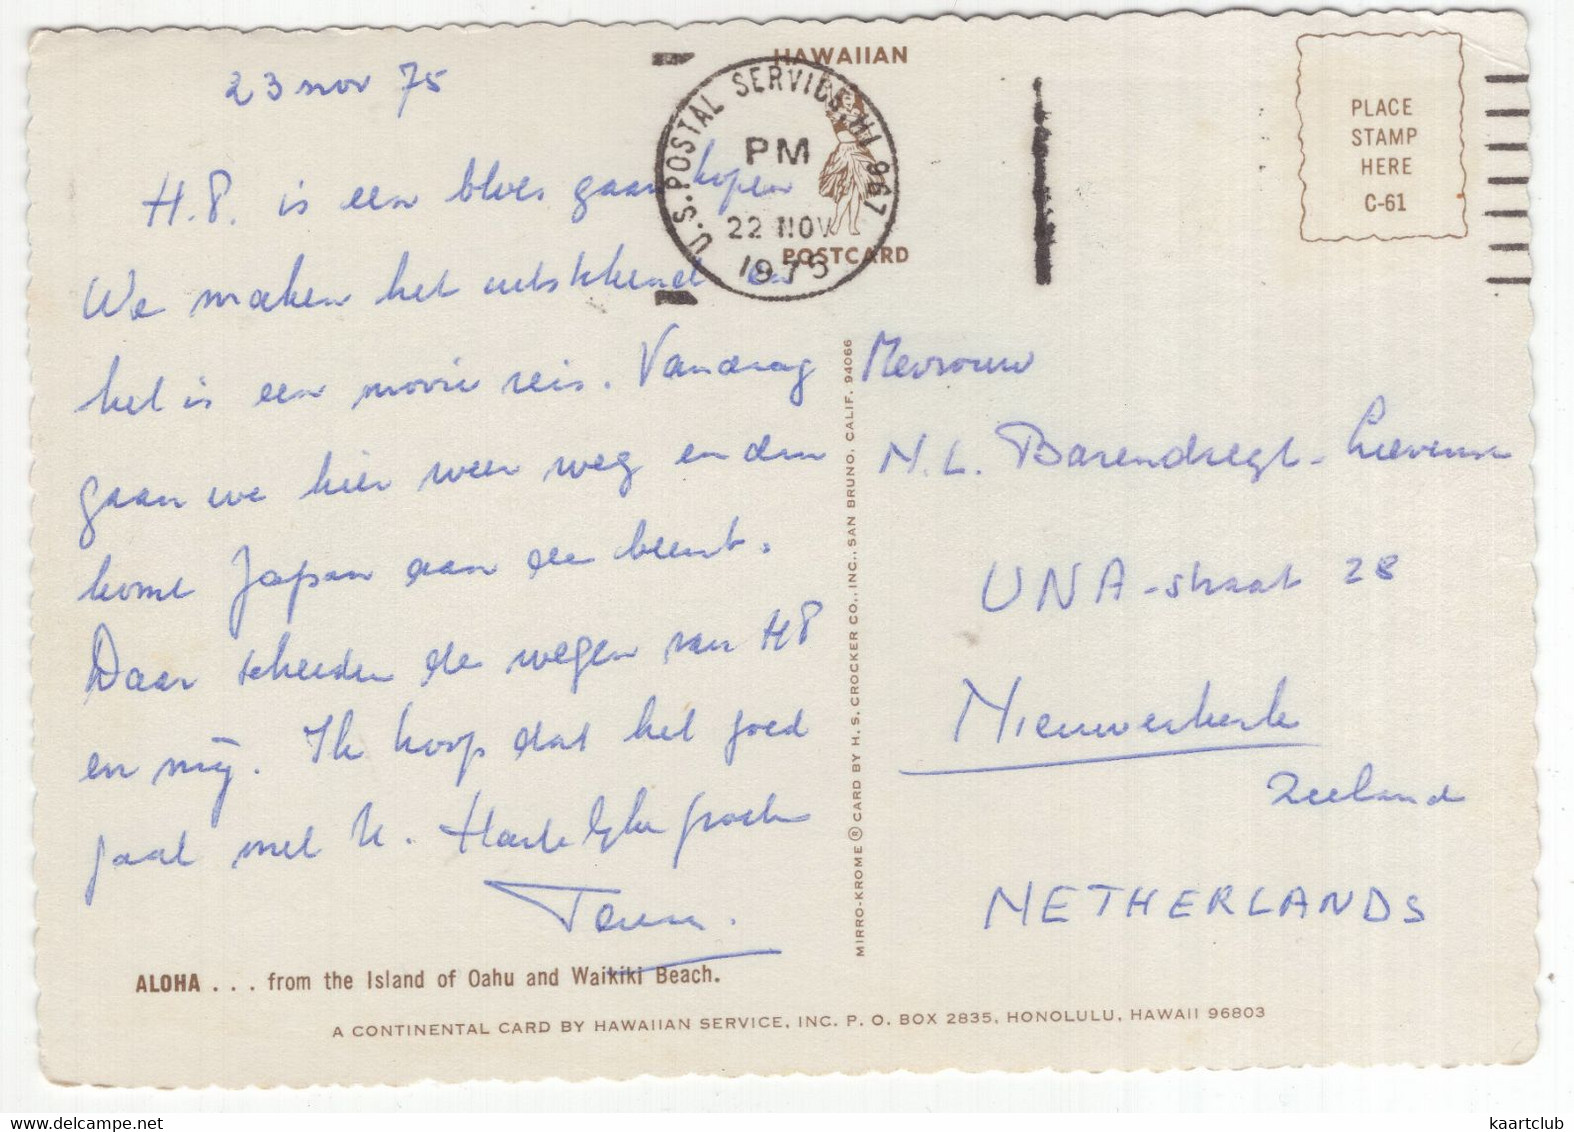 23 nov 75
H.P. is een bloes gaan kopen
We maken het uitstekend en
het is een mooie reis. Vandaag
gaan we hier weer weg en dan
komt Japan aan de beurt.
Daar scheiden de wegen van HP
en mij. Ik hoop dat het goed
gaat met U. Hartelijke groeten
Teun.
ALOHA . . . from the Island of Oahu and Waikiki Beach.
A CONTINENTAL CARD BY HAWAIIAN SERVICE, INC. P. O. BOX 2835, HONOLULU, HAWAII 96803
HAWAIIAN
POSTCARD
U.S. POSTAL SERVICE, HI 967
PM
22 NOV
1975
MIRRO-KROME ® CARD BY H. S. CROCKER CO., INC., SAN BRUNO, CALIF. 94066
PLACE
STAMP
HERE
C-61
Mevrouw
N. L. Barendregt - Lievense
UNA-straat 28
Nieuwerkerk
Zeeland
NETHERLANDS
www.delcampe.net
kaartclub